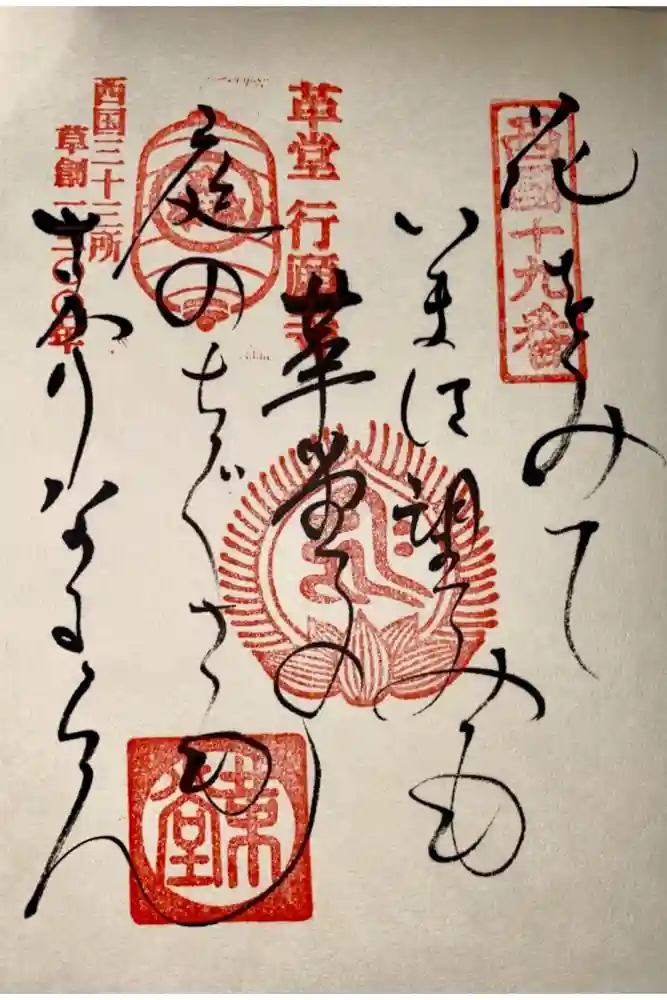 西国十九番
花をみて
いまは望みも
革堂 行願寺
革堂の
庭のちぐさも
西国三十三所
草創一三〇〇年
さかりなるらん
革堂